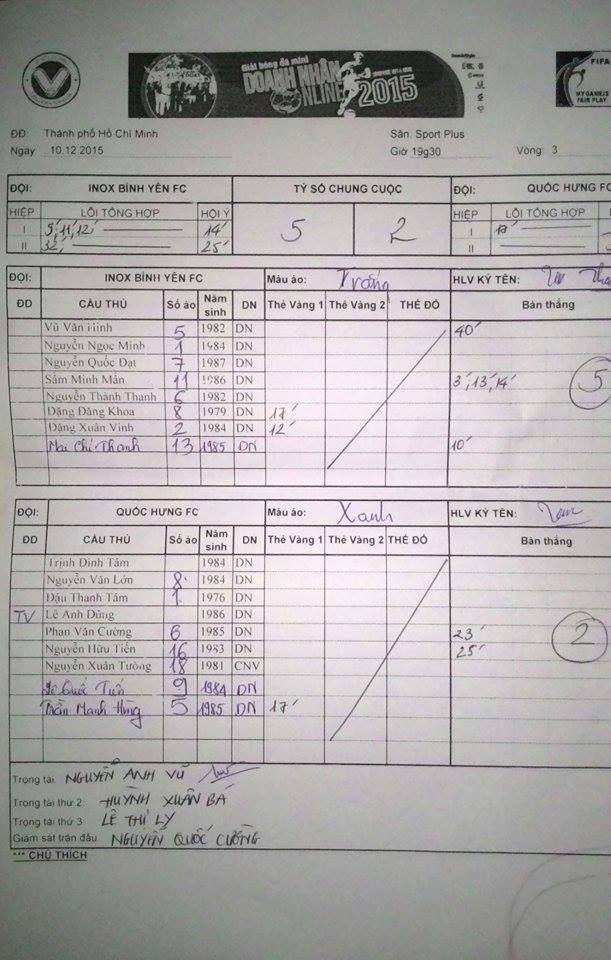 Giải bóng đá mini
DOANH NHÂN
ONLINE 2015
FIFA
MY GAME IS
FAIR PLAY
ĐĐ Thành phố Hồ Chí Minh Sân: Sport Plus
Ngày 10.12.2015 Giờ 19g30 Vòng: 3
ĐỘI: INOX BÌNH YÊN FC TỶ SỐ CHUNG CUỘC ĐỘI: QUỐC HƯNG FC
HIỆP LỖI TỔNG HỢP HỘI Ý 5 2 HIỆP LỖI TỔNG HỢP
I 9', 11', 12' 14' I
II 32' 25' II
ĐỘI: INOX BÌNH YÊN FC Màu áo: Trắng HLV KÝ TÊN:
ĐD CẦU THỦ Số áo Năm sinh DN Thẻ Vàng 1 Thẻ Vàng 2 THẺ ĐỎ Bàn thắng
Vũ Văn Hinh 5 1982 DN 40'
Nguyễn Ngọc Minh 1 1984 DN
Nguyễn Quốc Đạt 7 1987 DN
Sầm Minh Mẫn 11 1986 DN 3', 13', 14' 5
Nguyễn Thành Thanh 6 1982 DN
Đặng Đăng Khoa 8 1979 DN 17'
Đặng Xuân Vinh 2 1984 DN 12'
Mai Chí Thanh 13 1985 DN 10'
ĐỘI: QUỐC HƯNG FC Màu áo: Xanh HLV KÝ TÊN:
ĐD CẦU THỦ Số áo Năm sinh DN Thẻ Vàng 1 Thẻ Vàng 2 THẺ ĐỎ Bàn thắng
Trịnh Đình Tâm 1984 DN
Nguyễn Văn Lớn 8 1984 DN
Đậu Thanh Tâm 1 1976 DN
TV Lê Anh Dũng 1986 DN
Phan Văn Cường 6 1985 DN 23' 2
Nguyễn Hữu Tiến 16 1983 DN 25'
Nguyễn Xuân Tường 18 1981 CNV
Quốc Tiến 9 1984 DN
Trần Mạnh Hùng 5 1985 DN 17'
Trọng tài: NGUYỄN ANH VŨ
Trọng tài thứ 2: HUỲNH XUÂN BÁ
Trọng tài thứ 3: LÊ THỊ LÝ
Giám sát trận đấu: NGUYỄN QUỐC CƯỜNG
*** CHÚ THÍCH